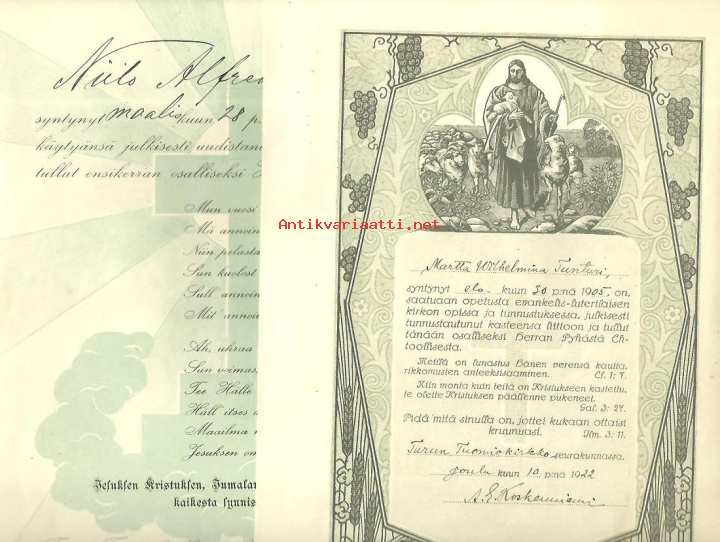 Niilo Alfre
syntynyt maalis kuun 28 p
käytyänsä julkisesti uudista
tullut ensikerran osalliseksi
Mun vuosi
Mä annoin
Niin pelasta
Sun kuolost
Sull annoin
Mit annoin
Ah, uhraa
Sun voimas
Tee Hälle
Häll itses
Maailma
Jesuksen om
Jesuksen Kristuksen, Jumalan
kaikesta synnis
Antikvariaatti.net
Martta Wilhelmina Tunturi,
syntynyt elo- kuun 30 p:nä 1905, on,
saatuaan opetusta evankelis-luterilaisen
kirkon opissa ja tunnustuksessa, julkisesti
tunnustautunut kasteensa liittoon ja tullut
tänään osalliseksi Herran Pyhästä Eh-
toollisesta.
Meillä on lunastus Hänen verensä kautta,
rikkomusten anteeksisaaminen.
Ef. 1: 7.
Niin monta kuin teitä on Kristukseen kastettu,
te olette Kristuksen päällenne pukeneet.
Gal. 3: 27.
Pidä mitä sinulla on, jottei kukaan ottaisi
kruunuasi.
Ilm. 3: 11.
Turun Tuomiokirkko seurakunnassa,
joulu kuun 10 p:nä 1922
A. E. Koskenniemi